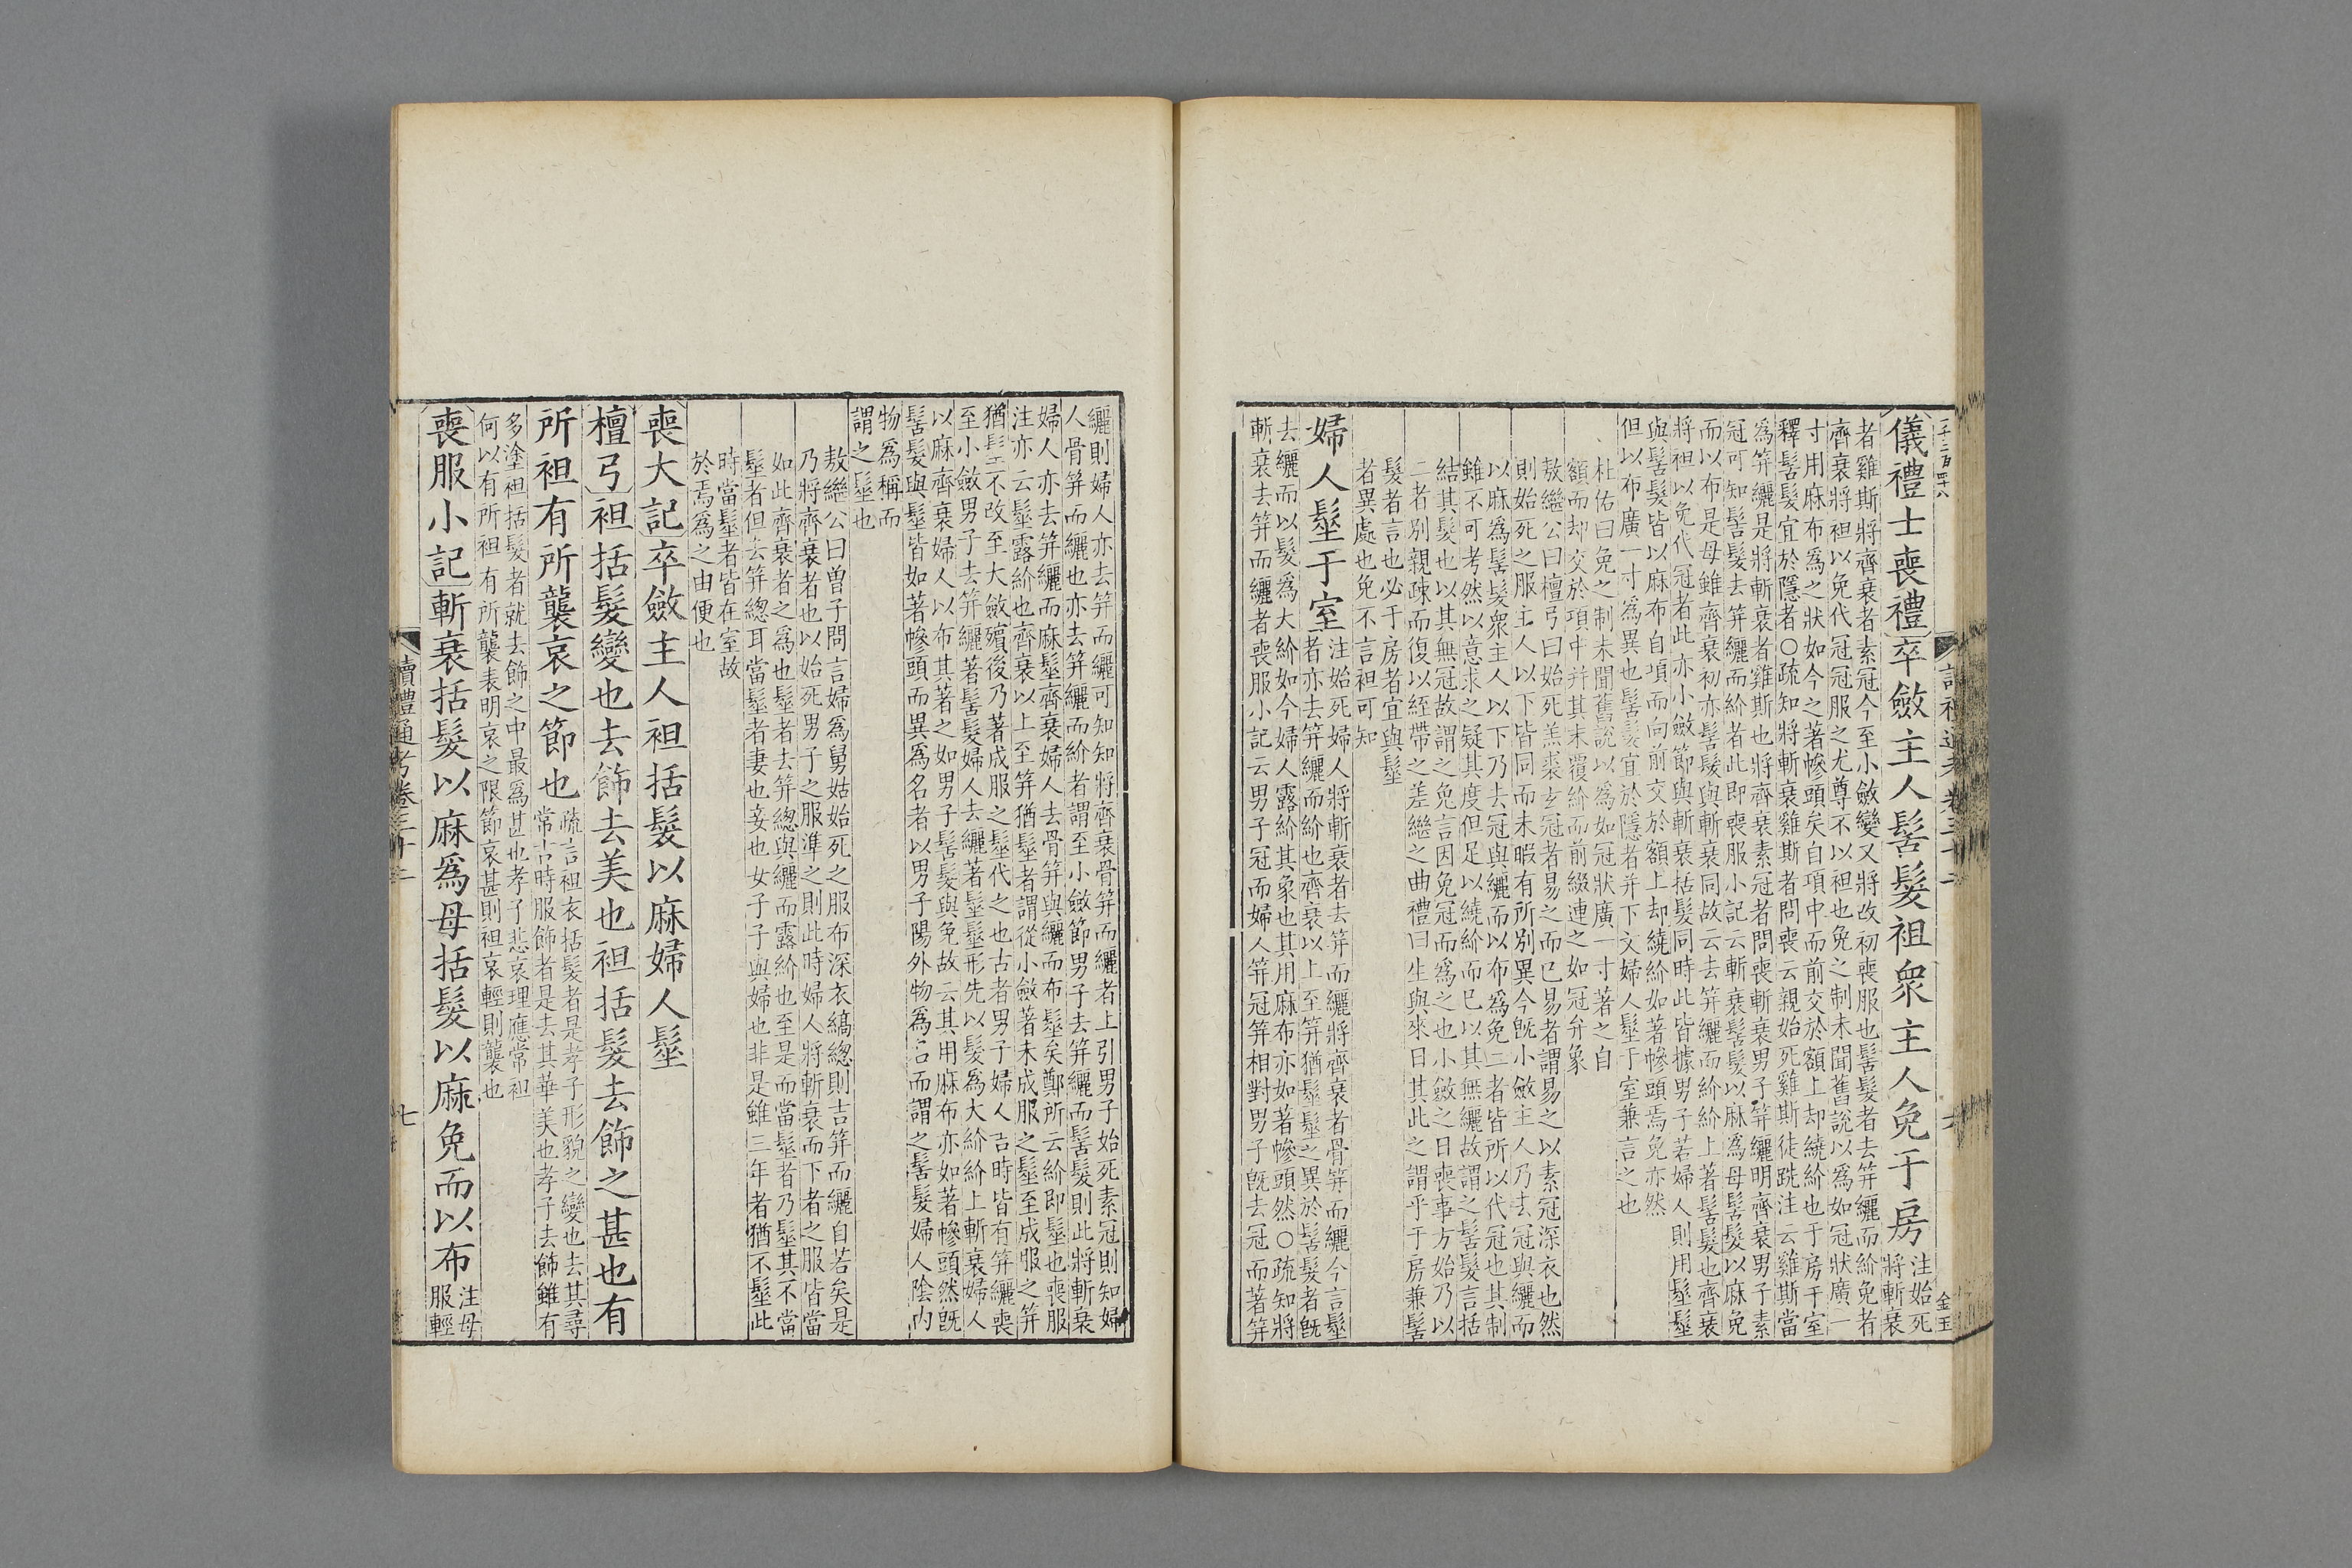 儀禮士喪禮卒斂主人髺髮袒衆主人免于房
注始死
將斬衰
者雞斯將齊衰者素冠今至小斂變又將改初喪服也髺髮者去筓纚而紒免者
齊衰將袒以免代冠冠服之尤尊不以袒也免之制未聞舊說以爲如冠狀廣一
寸用麻布爲之狀如今之著幓頭矣自項中而前交於額上却繞紒也于房于室
釋髺髮宜於隱者〇疏知將斬衰雞斯者問喪云親始死雞斯徒跣注云雞斯當
爲筓纚是將斬衰者雞斯也將齊衰素冠者問喪斬衰男子筓纚明齊衰男子素
冠可知髺髮去筓纚而紒者此即喪服小記云斬衰髺髮以麻爲母髺髮以麻免
而以布是母雖齊衰初亦髺髮與斬衰同故云去筓纚而紒紒上著髺髮也齊衰
將袒以免代冠者此亦小斂節與斬衰括髮同時此皆據男子若婦人則用髽髽
與髺髮皆以麻布自項而向前交於額上却繞紒如著幓頭焉免亦然
但以布廣一寸爲異也髺髮宜於隱者并下文婦人髽于室兼言之也
杜佑曰免之制未聞舊說以爲如冠狀廣一寸著之自
額而却交於項中并其末覆紒而前綴連之如冠弁象
敖繼公曰檀弓曰始死羔裘玄冠者易之而已易者謂易之以素冠深衣也然
則始死之服主人以下皆同而未暇有所別異今旣小斂主人乃去冠與纚而
以麻爲髺髮衆主人以下乃去冠與纚而以布爲免二者皆所以代冠也其制
雖不可考然以意求之疑其度但足以繞紒而已以其無纚故謂之髺髮言括
結其髮也以其無冠故謂之免言因免冠而爲之也小斂之日喪事方始乃以
二者別親疎而復以絰帶之差繼之曲禮曰生與來日其此之謂乎于房兼髺
髮者言也必于房者宜與髽
者異處也免不言袒可知
婦人髽于室
注始死婦人將斬衰者去筓而纚將齊衰者骨筓而纚今言髽
者亦去筓纚而紒也齊衰以上至筓猶髽髽之異於髺髮者旣
去纚而以髮爲大紒如今婦人露紒其象也其用麻布亦如著幓頭然〇疏知將
斬衰去筓而纚者喪服小記云男子冠而婦人筓冠筓相對男子旣去冠而著筓
纚則婦人亦去筓而纚可知知將齊衰骨筓而纚者上引男子始死素冠則知婦
人骨筓而纚也亦去筓纚而紒者謂至小斂節男子去筓纚而髺髮則此將斬衰
婦人亦去筓纚而麻髽齊衰婦人去骨筓與纚而布髽矣鄭所云紒即髽也喪服
注亦云髽露紒也齊衰以上至筓猶髽者謂從小斂著未成服之髽至成服之筓
猶髽不改至大斂殯後乃著成服之髽代之也古者男子婦人吉時皆有筓纚喪
至小斂男子去筓纚著髺髮婦人去纚著髽髽形先以髮爲大紒紒上斬衰婦人
以麻齊衰婦人以布其著之如男子髺髮與免故云其用麻布亦如著幓頭然旣
髺髮與髽皆如著幓頭而異爲名者以男子陽外物爲名而謂之髺髮婦人陰內
物爲稱而
謂之髽也
敖繼公曰曾子問言婦爲舅姑始死之服布深衣縞總則吉筓而纚自若矣是
乃將齊衰者也以始死男子之服準之則此時婦人將斬衰而下者之服皆當
如此齊衰者之爲也髽者去筓總與纚而露紒也至是而當髽者乃髽其不當
髽者但去筓總耳當髽者妻也妾也女子子與婦也非是雖三年者猶不髽此
時當髽者皆在室故
於焉爲之由便也
喪大記卒斂主人袒括髮以麻婦人髽
檀弓袒括髮變也去飾去美也袒括髮去飾之甚也有
所袒有所襲哀之節也
疏言袒衣括髮者是孝子形貌之變也去其尋
常吉時服飾者是去其華美也孝子去飾雖有
多塗袒括髮者就去飾之中最爲甚也孝子悲哀理應常袒
何以有所袒有所襲表明哀之限節哀甚則袒哀輕則襲也
喪服小記斬衰括髮以麻爲母括髮以麻免而以布
注母
服輕
讀禮通考卷三十二
七